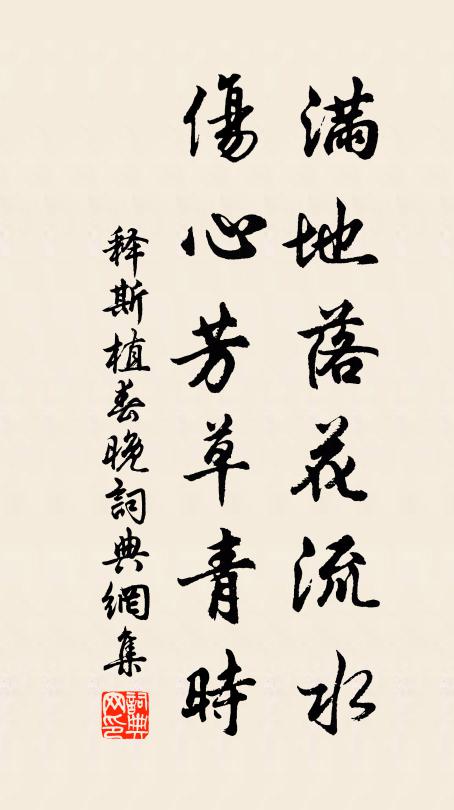 滿地落花流水
傷心芳草青時
释斯植春晚詞典網集
詞典网印